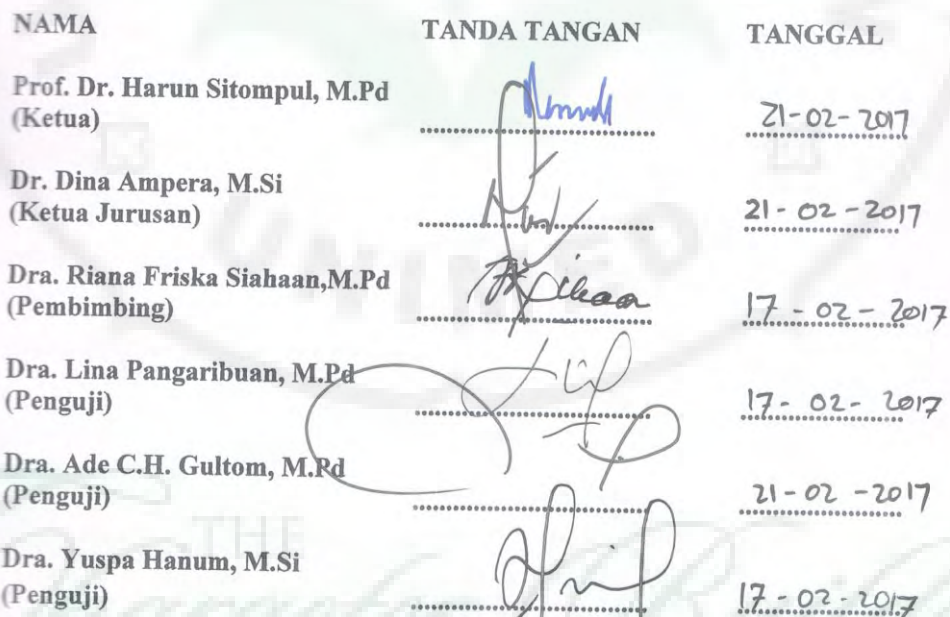 NAMA TANDA TANGAN TANGGAL
Prof. Dr. Harun Sitompul, M.Pd
(Ketua) 21-02-2017
Dr. Dina Ampera, M.Si
(Ketua Jurusan) 21-02-2017
Dra. Riana Friska Siahaan,M.Pd
(Pembimbing) 17-02-2017
Dra. Lina Pangaribuan, M.Pd
(Penguji) 17-02-2017
Dra. Ade C.H. Gultom, M.Pd
(Penguji) 21-02-2017
Dra. Yuspa Hanum, M.Si
(Penguji) 17-02-2017
UNIMED
THE